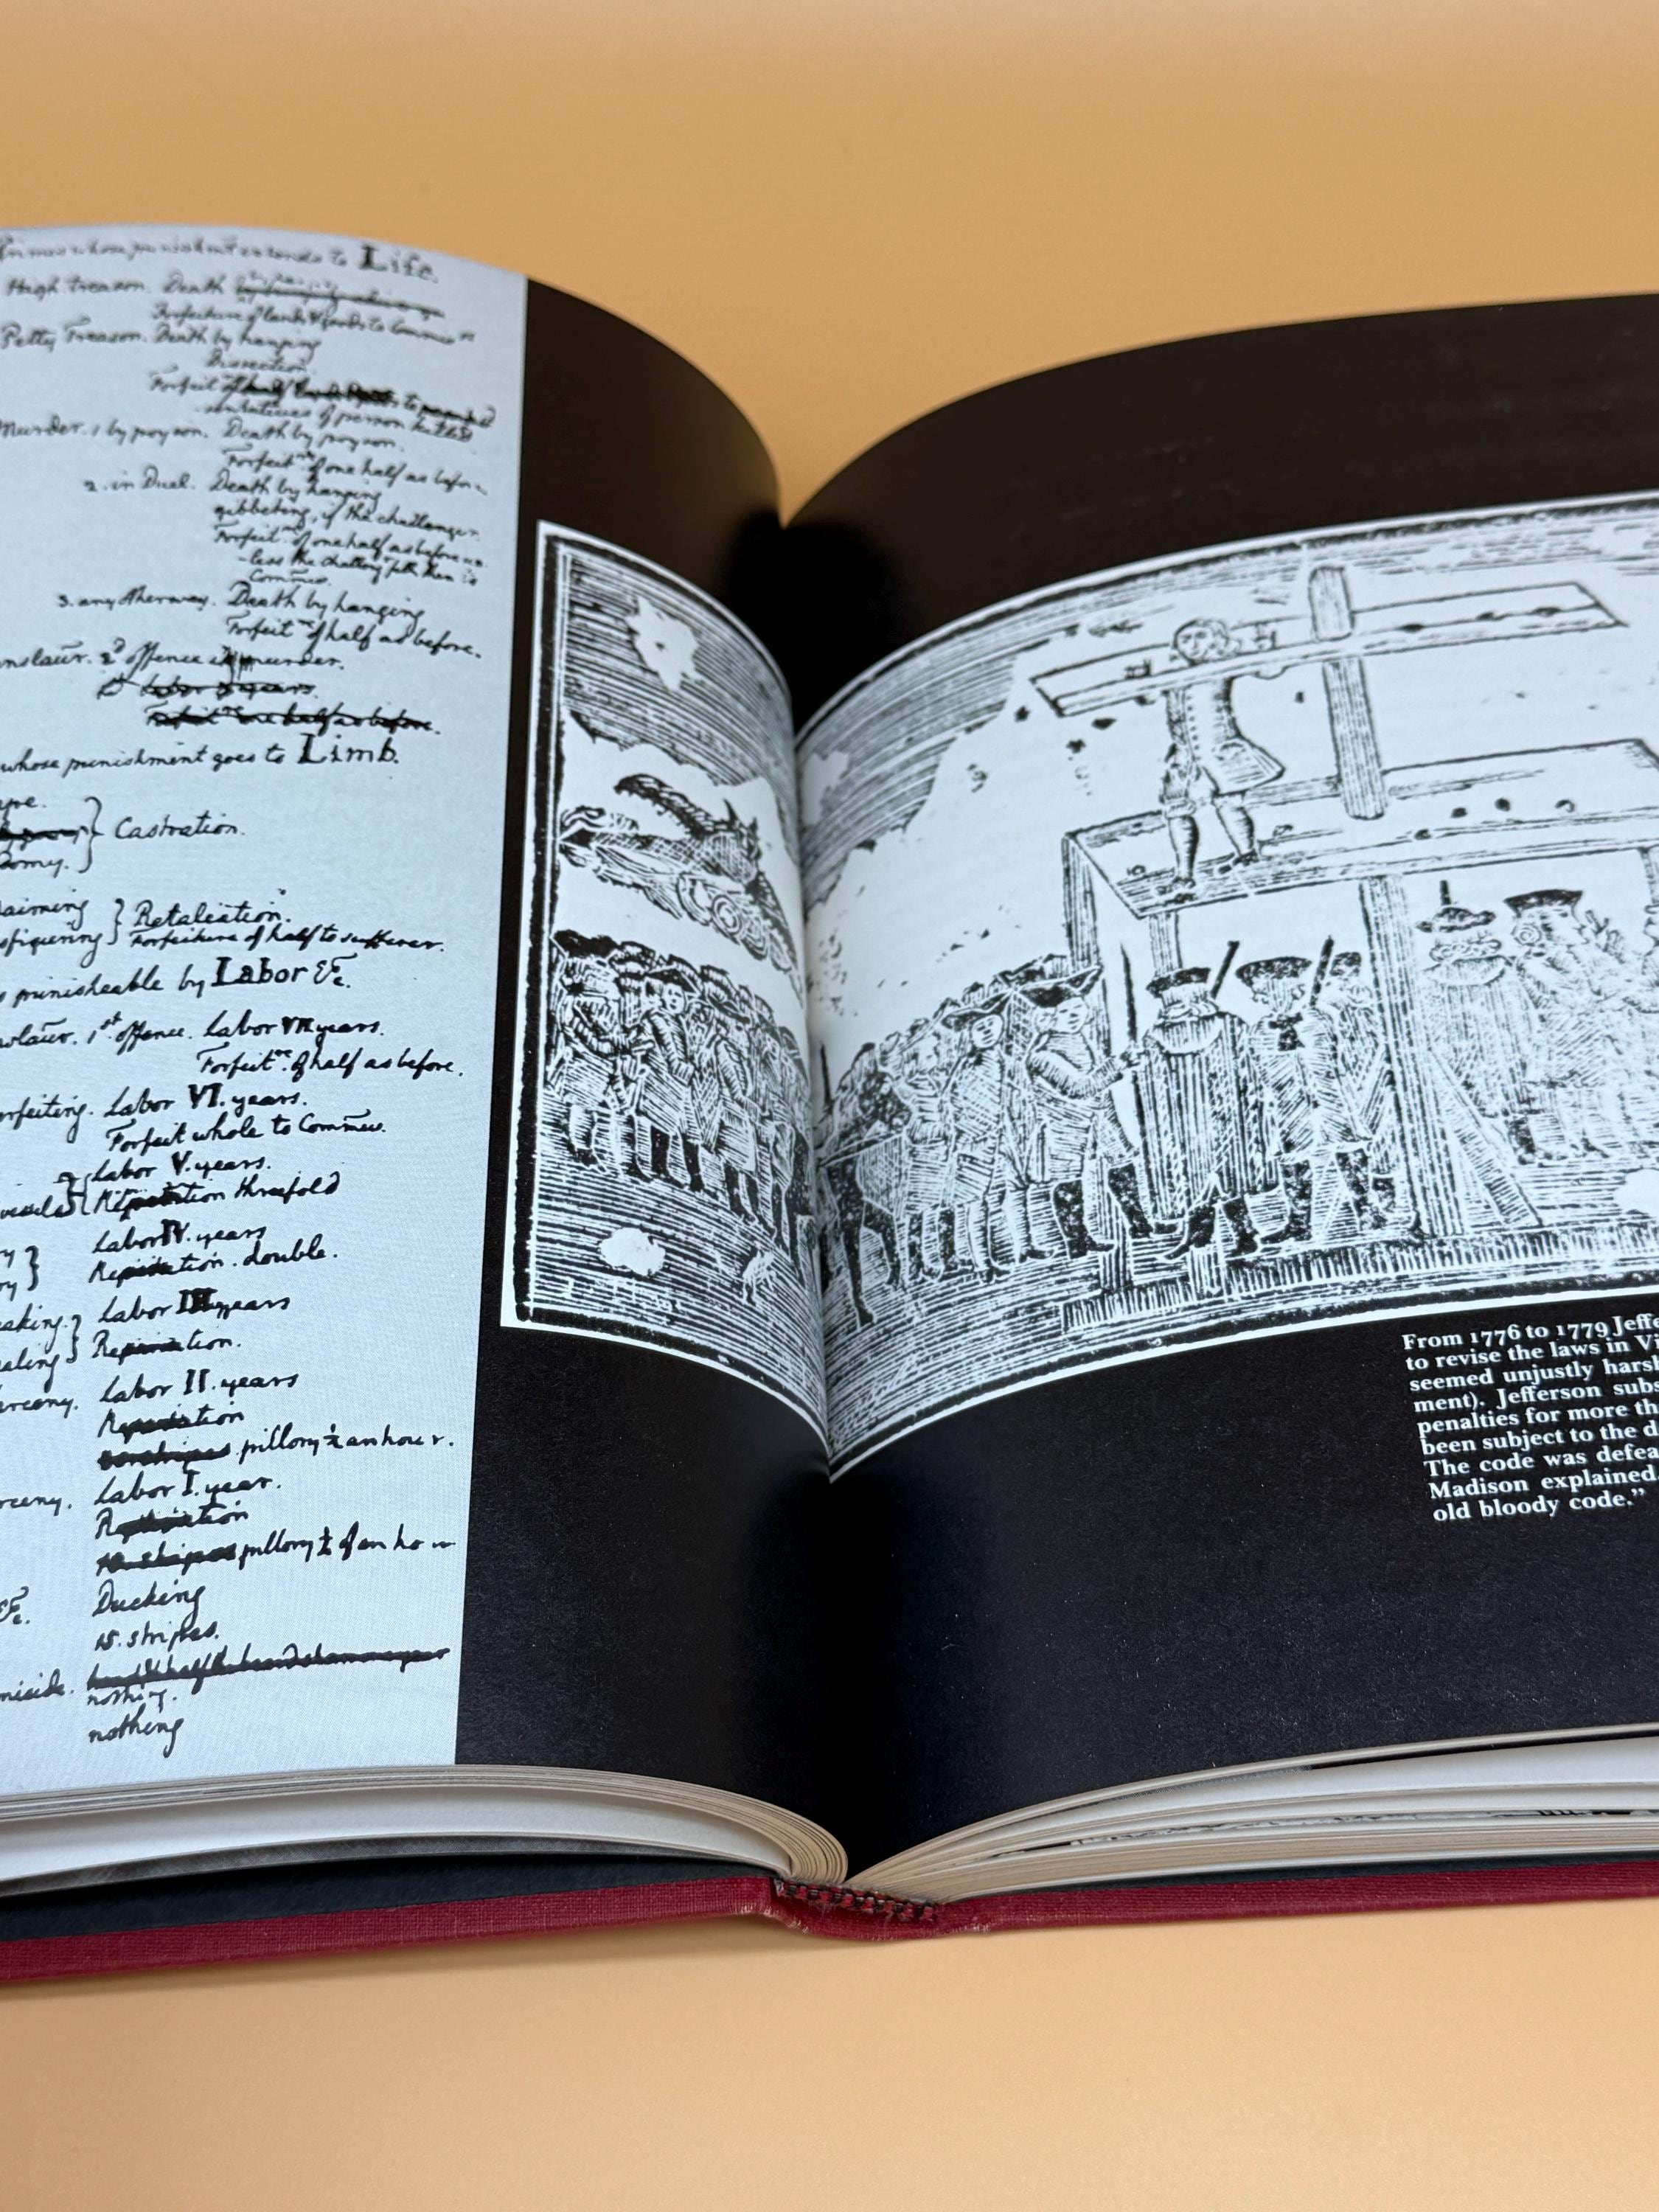 whose punishment extends to Life.
High treason. Death
Forfeiture of lands & goods to Commw
Petty Treason. Death by hanging
Dissection.
Forfeit of to
-sentatives of person killed
Murder. 1 by poyson. Death by poyson.
Forfeitre of one half as before
2. in Duel. Death by hanging
gibbeting, if the challenger
Forfeitre of one half as before un
-less the challenger
Commw.
3. any other way. Death by hanging
Forfeitre of half as before.
nslaur. 2d offence is murder.
Labor years.
Forfeitre one half as before.
whose punishment goes to Limb.
ape.
Castration.
omy.
aiming } Retaliation.
sfiguring } Forfeiture of half to sufferer.
s punisheable by Labor &c.
slaur. 1st offence. Labor VII years.
Forfeitre of half as before.
rfeiting. Labor VI. years.
Forfeit whole to Commw.
Labor V. years.
vessels threefold
Labor IV. years
double.
eaking. Labor III years
ealing
rceny. Labor II. years
pillory ½ an hour.
rceny. Labor I. year.
pillory of an ho
&c. Ducking
15. stripes.
micide.
nothing.
nothing
From 1776 to 1779 Jeffe
to revise the laws in Vi
seemed unjustly harsh
ment). Jefferson subs
penalties for more th
been subject to the d
The code was defea
Madison explained,
old bloody code.”